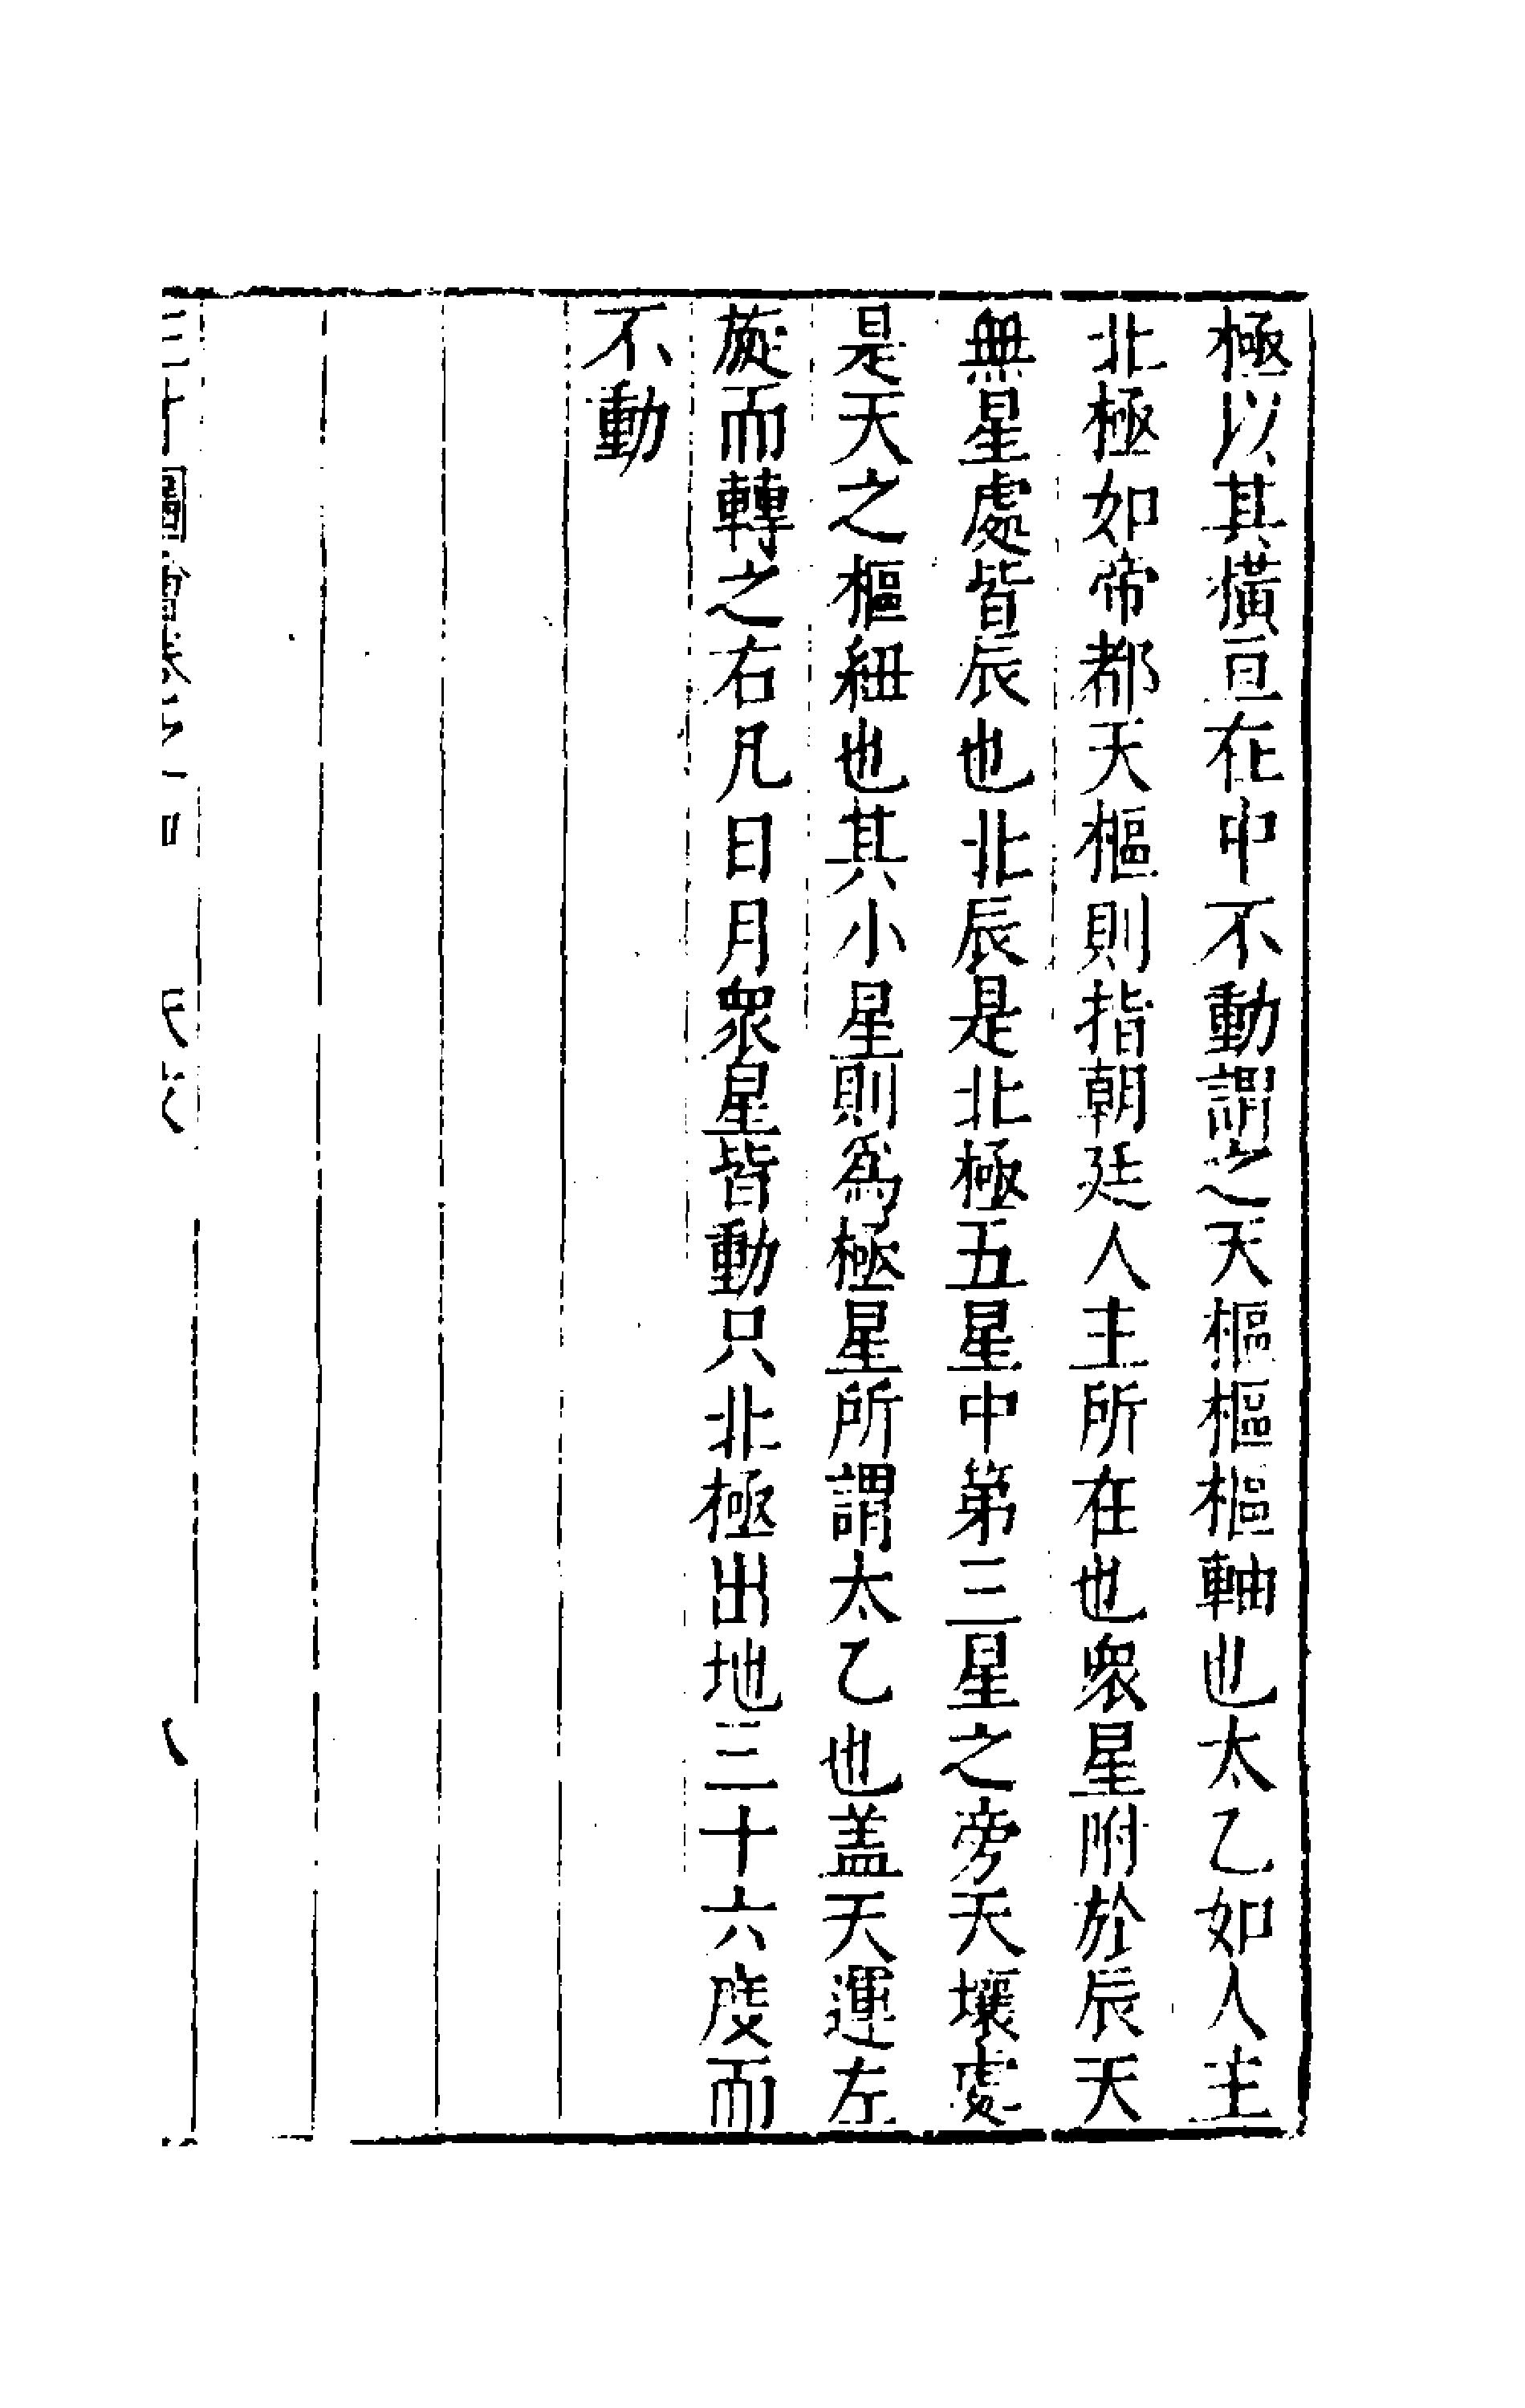 極以其橫亘在中不動謂之天樞樞樞軸也太乙如人主
北極如帝都天樞則指朝廷人主所在也衆星附於辰天
無星處皆辰也北辰是北極五星中第三星之旁天壤處
是天之樞紐也其小星則為極星所謂太乙也盖天運左
旋而轉之右凡日月衆星皆動只北極出地三十六度而
不動